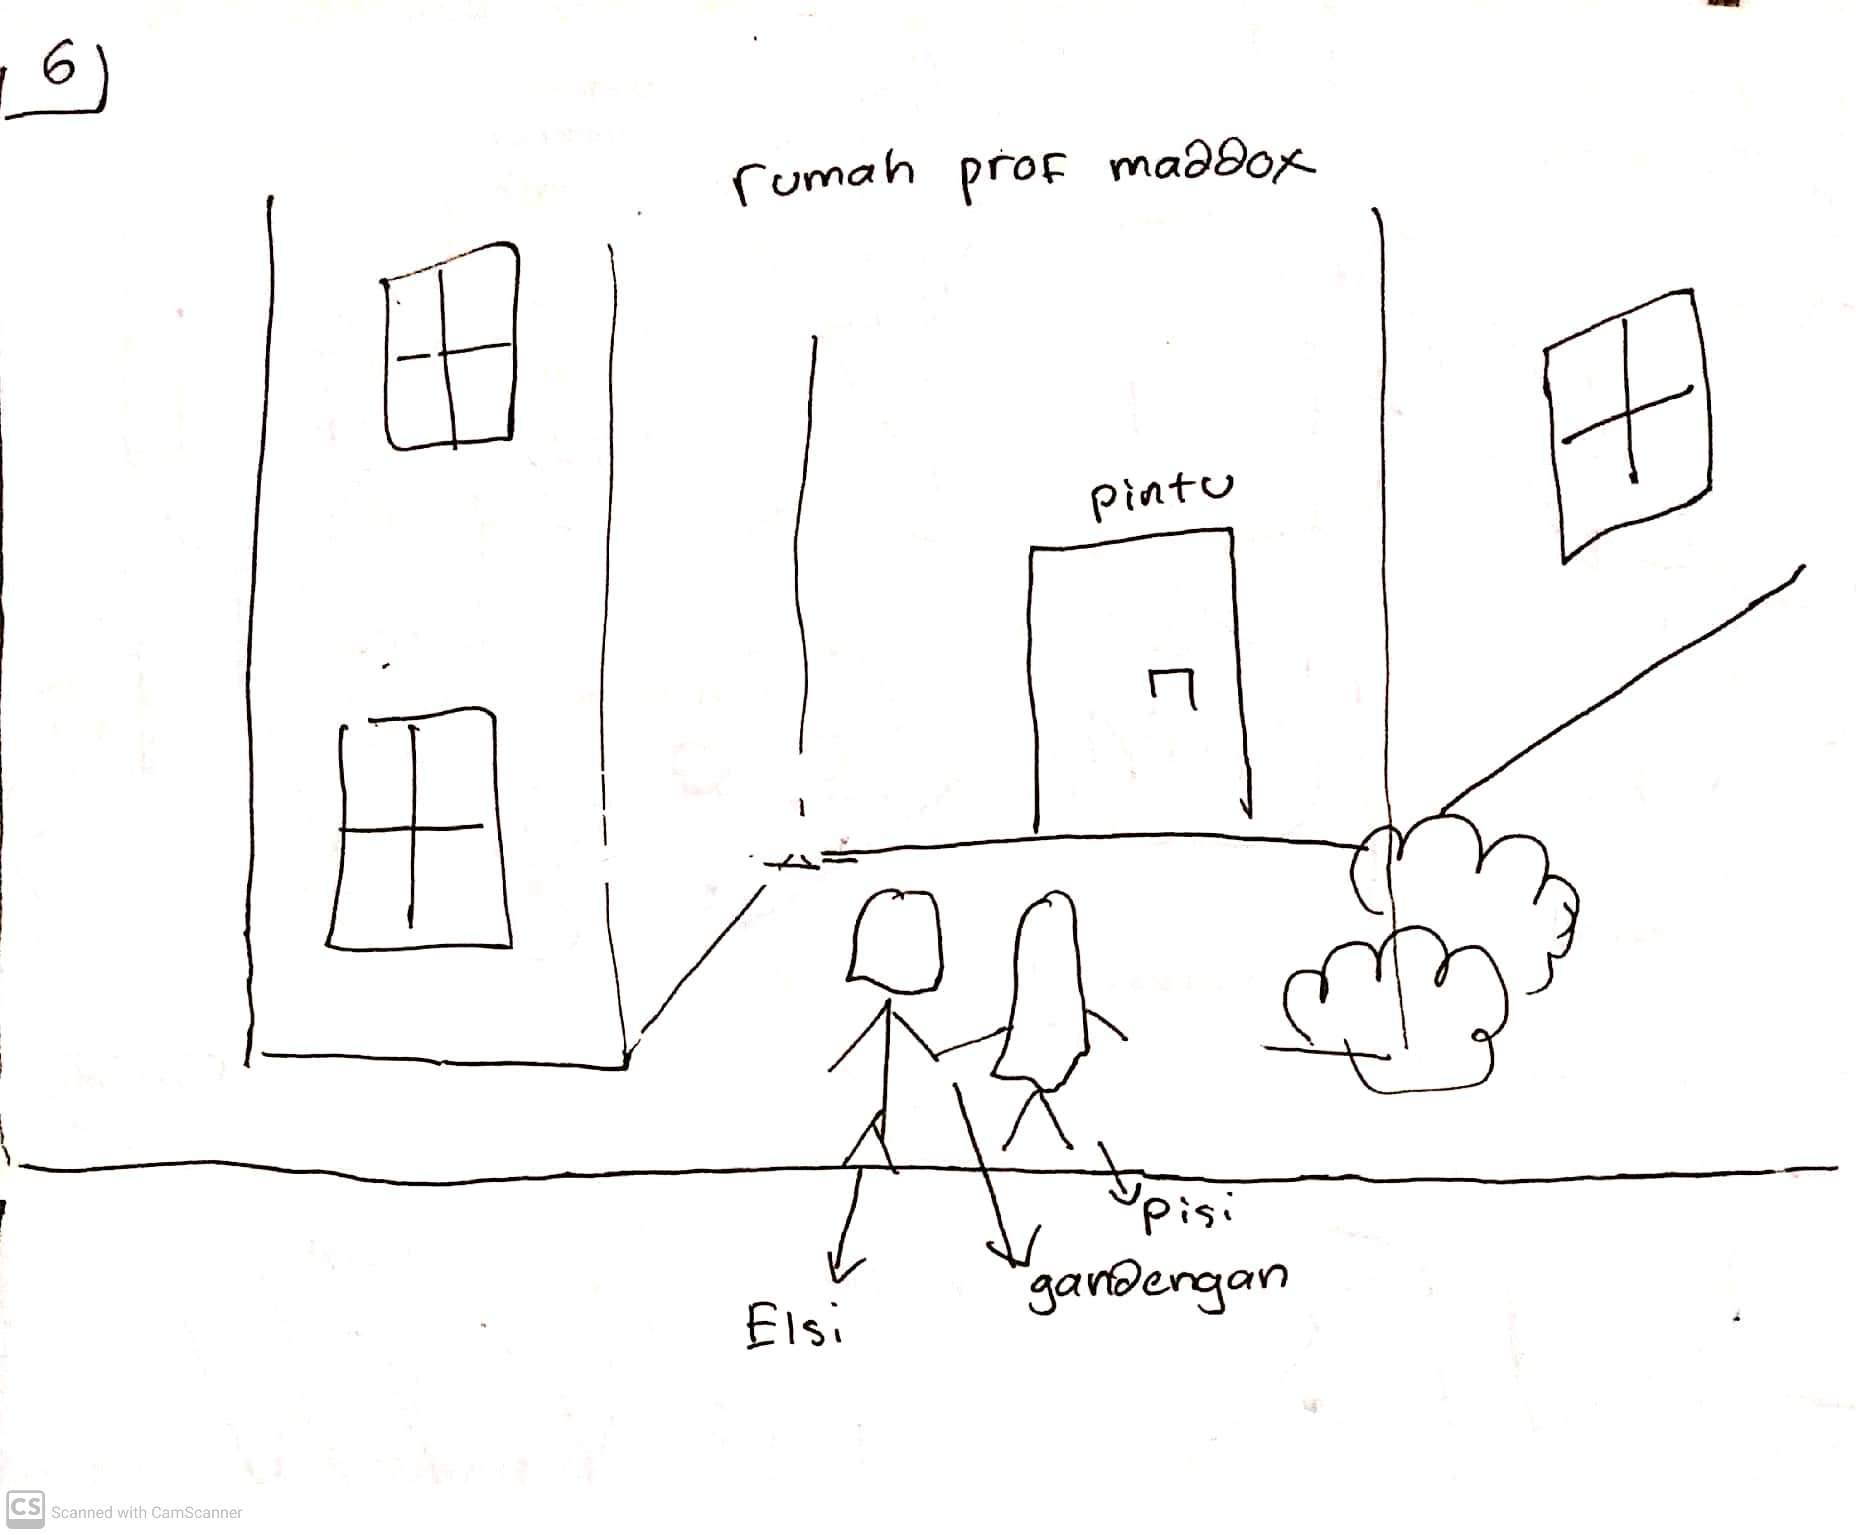 6
rumah prof maddox
pintu
pisi
gandengan
Elsi
CS Scanned with CamScanner